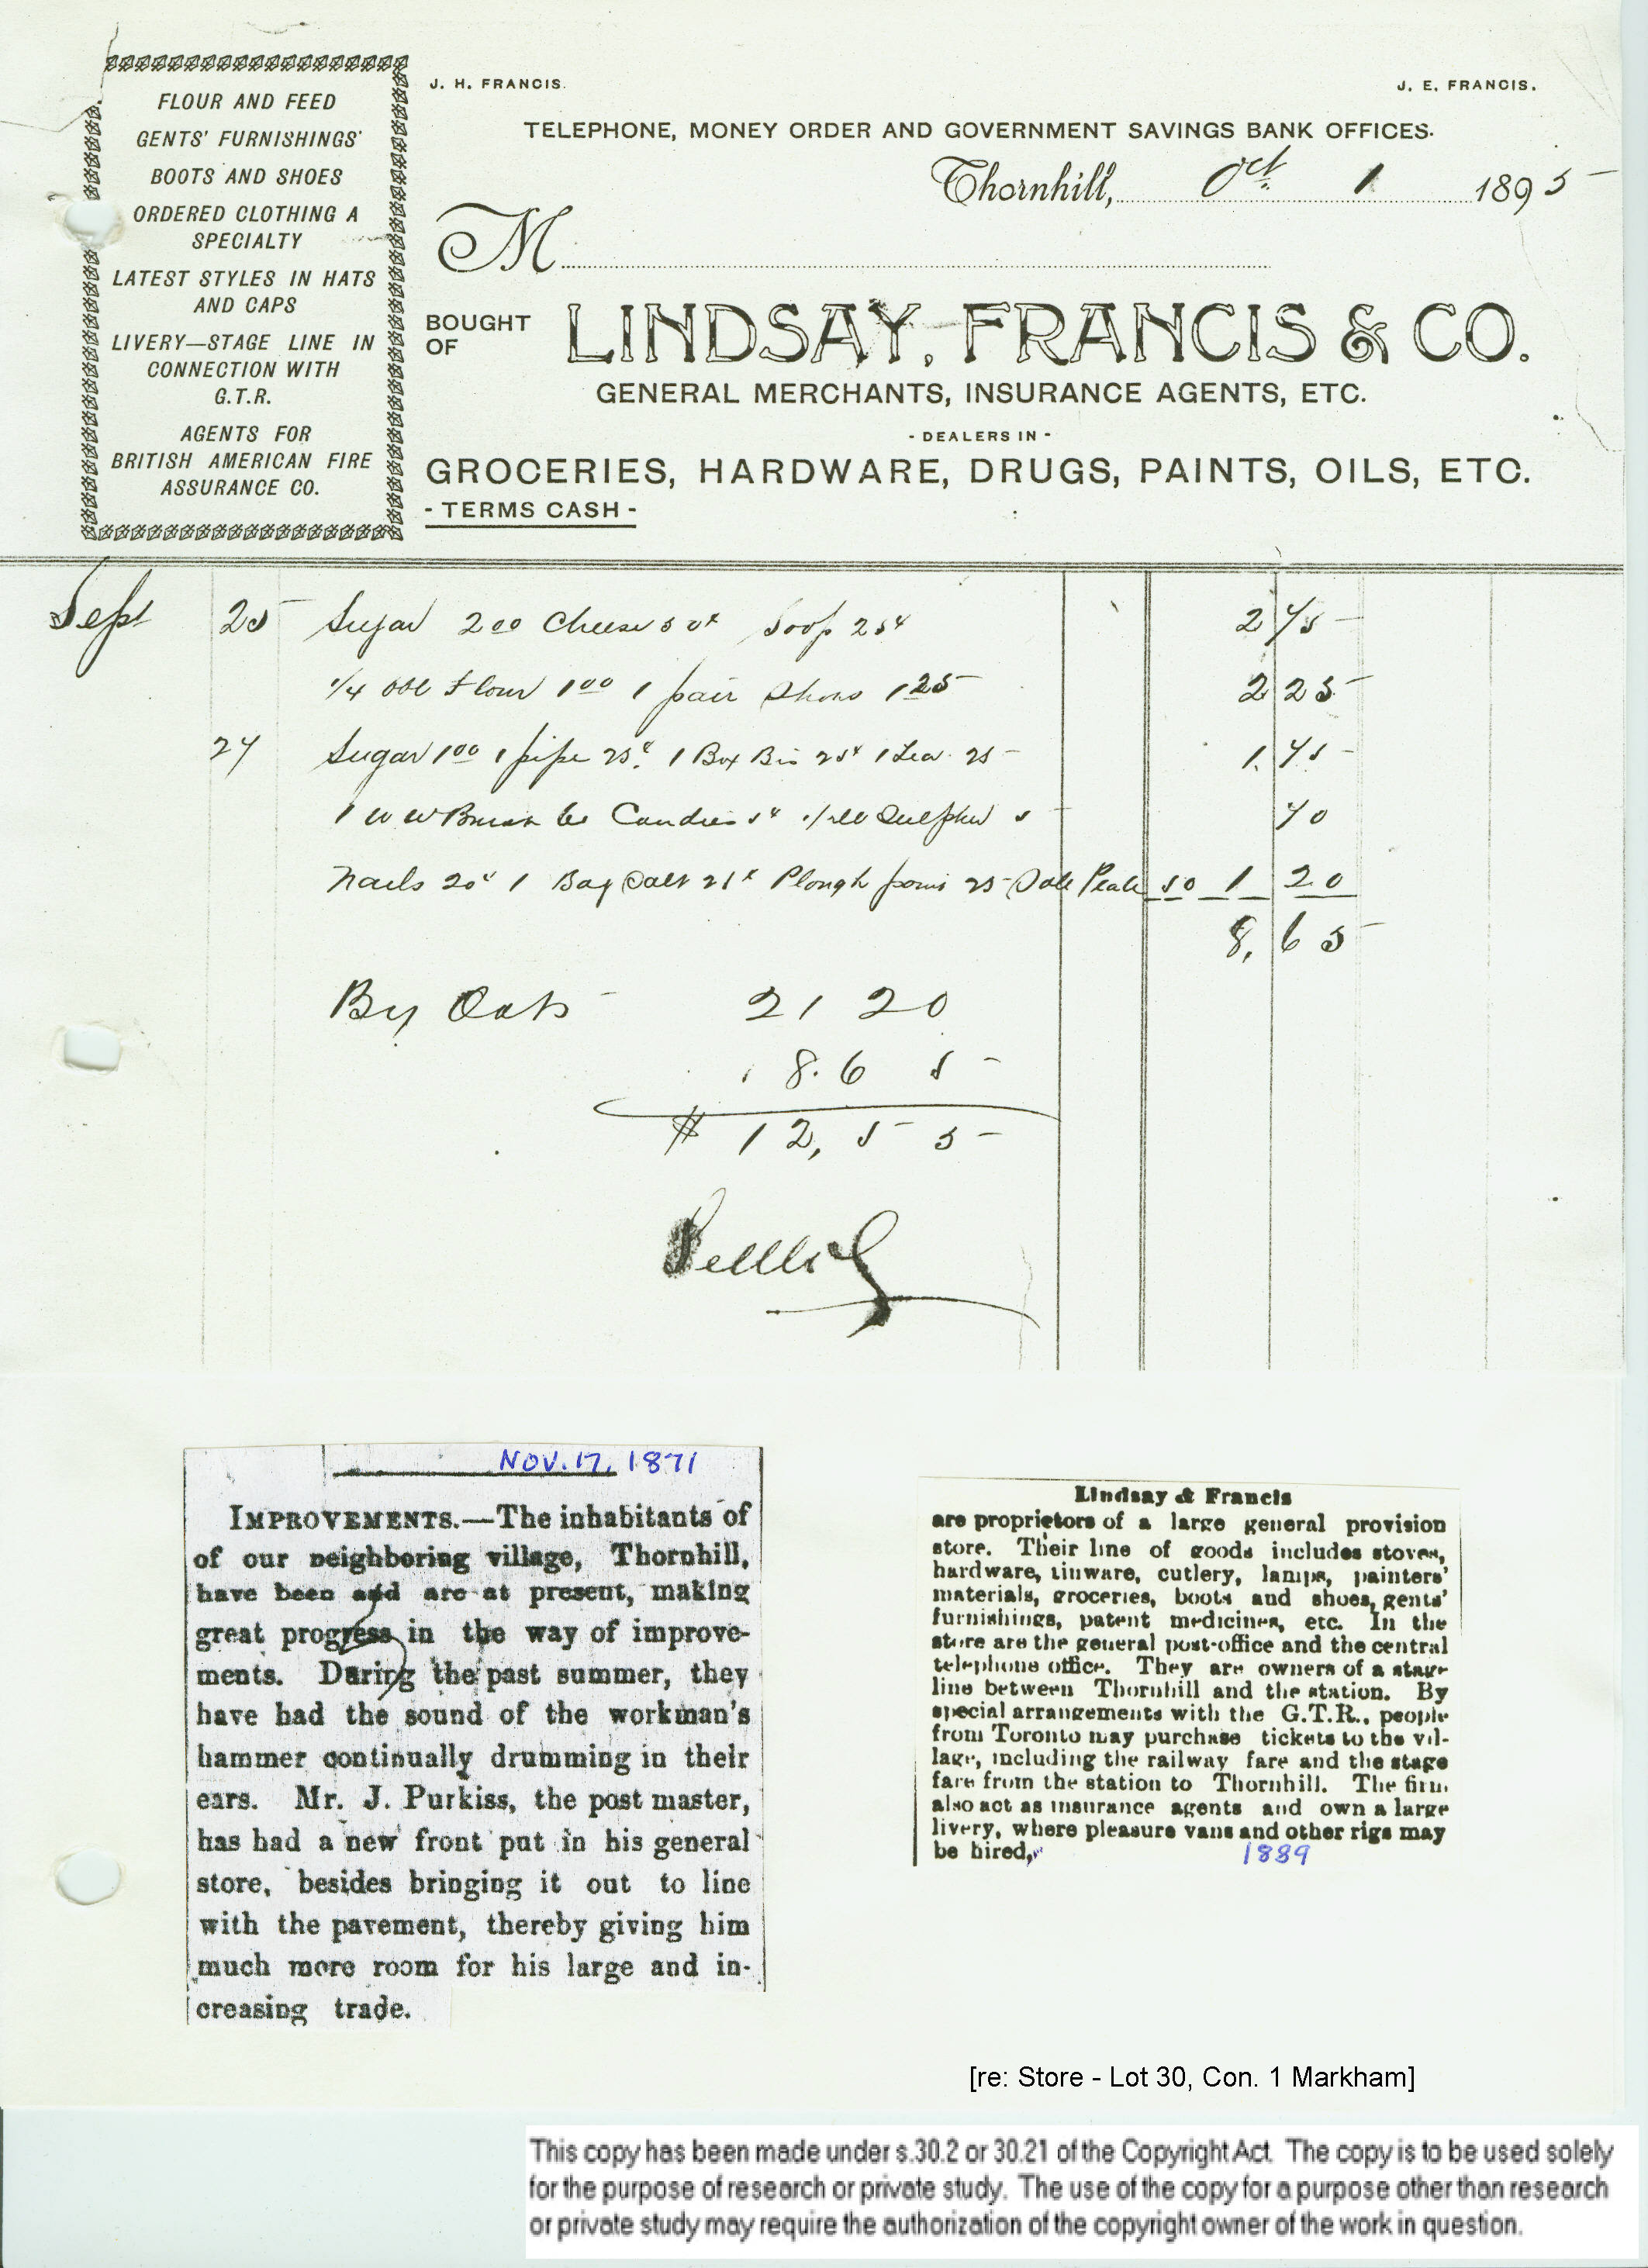 FLOUR AND FEED
GENTS' FURNISHINGS
BOOTS AND SHOES
ORDERED CLOTHING A
SPECIALTY
LATEST STYLES IN HATS
AND CAPS
LIVERY—STAGE LINE IN
CONNECTION WITH
G.T.R.
AGENTS FOR
BRITISH AMERICAN FIRE
ASSURANCE CO.
J. H. FRANCIS. J. E. FRANCIS.
TELEPHONE, MONEY ORDER AND GOVERNMENT SAVINGS BANK OFFICES.
Thornhill, Oct. 1 1895
M
BOUGHT
OF
LINDSAY, FRANCIS & CO.
GENERAL MERCHANTS, INSURANCE AGENTS, ETC.
- DEALERS IN -
GROCERIES, HARDWARE, DRUGS, PAINTS, OILS, ETC.
- TERMS CASH -
Sept 25 Sugar 2 00 Cheese 50 Soap 25 2 75
1/4 bbl Flour 1 00 1 pair Shoes 1 25 2 25
27 Sugar 1 00 1 pipe 25 1 Box 25 1 Tea 25 1.75
1 W W Candies 5 Sulphur 5 70
Nails 20 1 Bag Salt 25 Plough 25 50 1 20
8.65
By Oats 21 20
8.65
$ 12,55
NOV. 17, 1871
IMPROVEMENTS.—The inhabitants of
of our neighboring village, Thornhill,
have been and are at present, making
great progress in the way of improve-
ments. During the past summer, they
have had the sound of the workman's
hammer continually drumming in their
ears. Mr. J. Purkiss, the post master,
has had a new front put in his general
store, besides bringing it out to line
with the pavement, thereby giving him
much more room for his large and in-
creasing trade.
Lindsay & Francis
are proprietors of a large general provision
store. Their line of goods includes stoves,
hardware, tinware, cutlery, lamps, painters'
materials, groceries, boots and shoes, gents'
furnishings, patent medicines, etc. In the
store are the general post-office and the central
telephone office. They are owners of a stage
line between Thornhill and the station. By
special arrangements with the G.T.R., people
from Toronto may purchase tickets to the vil-
lage, including the railway fare and the stage
fare from the station to Thornhill. The firm
also act as insurance agents and own a large
livery, where pleasure vans and other rigs may
be hired,
1889
[re: Store - Lot 30, Con. 1 Markham]
This copy has been made under s.30.2 or 30.21 of the Copyright Act. The copy is to be used solely
for the purpose of research or private study. The use of the copy for a purpose other than research
or private study may require the authorization of the copyright owner of the work in question.